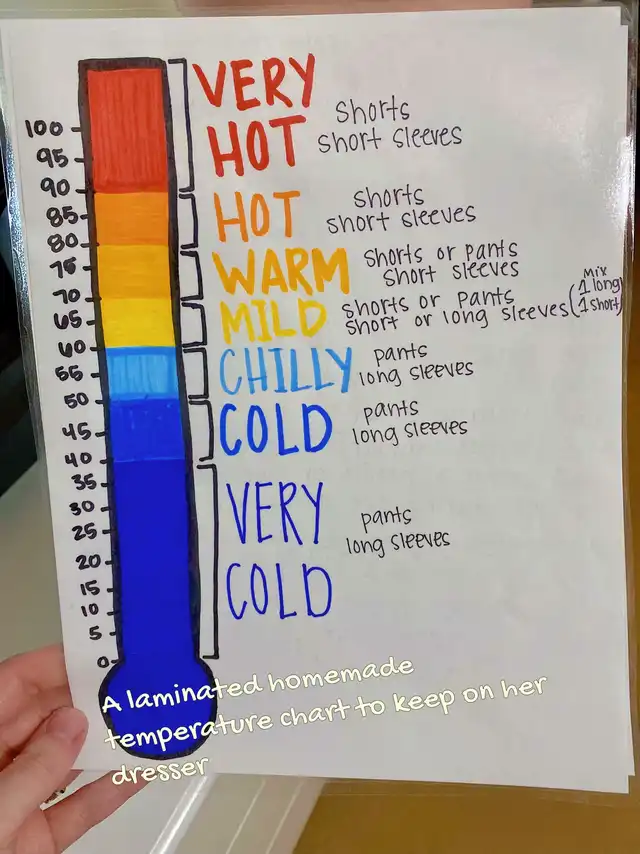 VERY
HOT
shorts
short sleeves
100
95
90
HOT
shorts
short sleeves
85
80
WARM
shorts or pants
short sleeves
75
70
MILD
shorts or pants
short or long sleeves
(Mix
1 long
1 short)
65
60
CHILLY
pants
long sleeves
55
50
COLD
pants
long sleeves
45
40
35
VERY
COLD
pants
long sleeves
30
25
20
15
10
5
0
A laminated homemade
temperature chart to keep on her
dresser